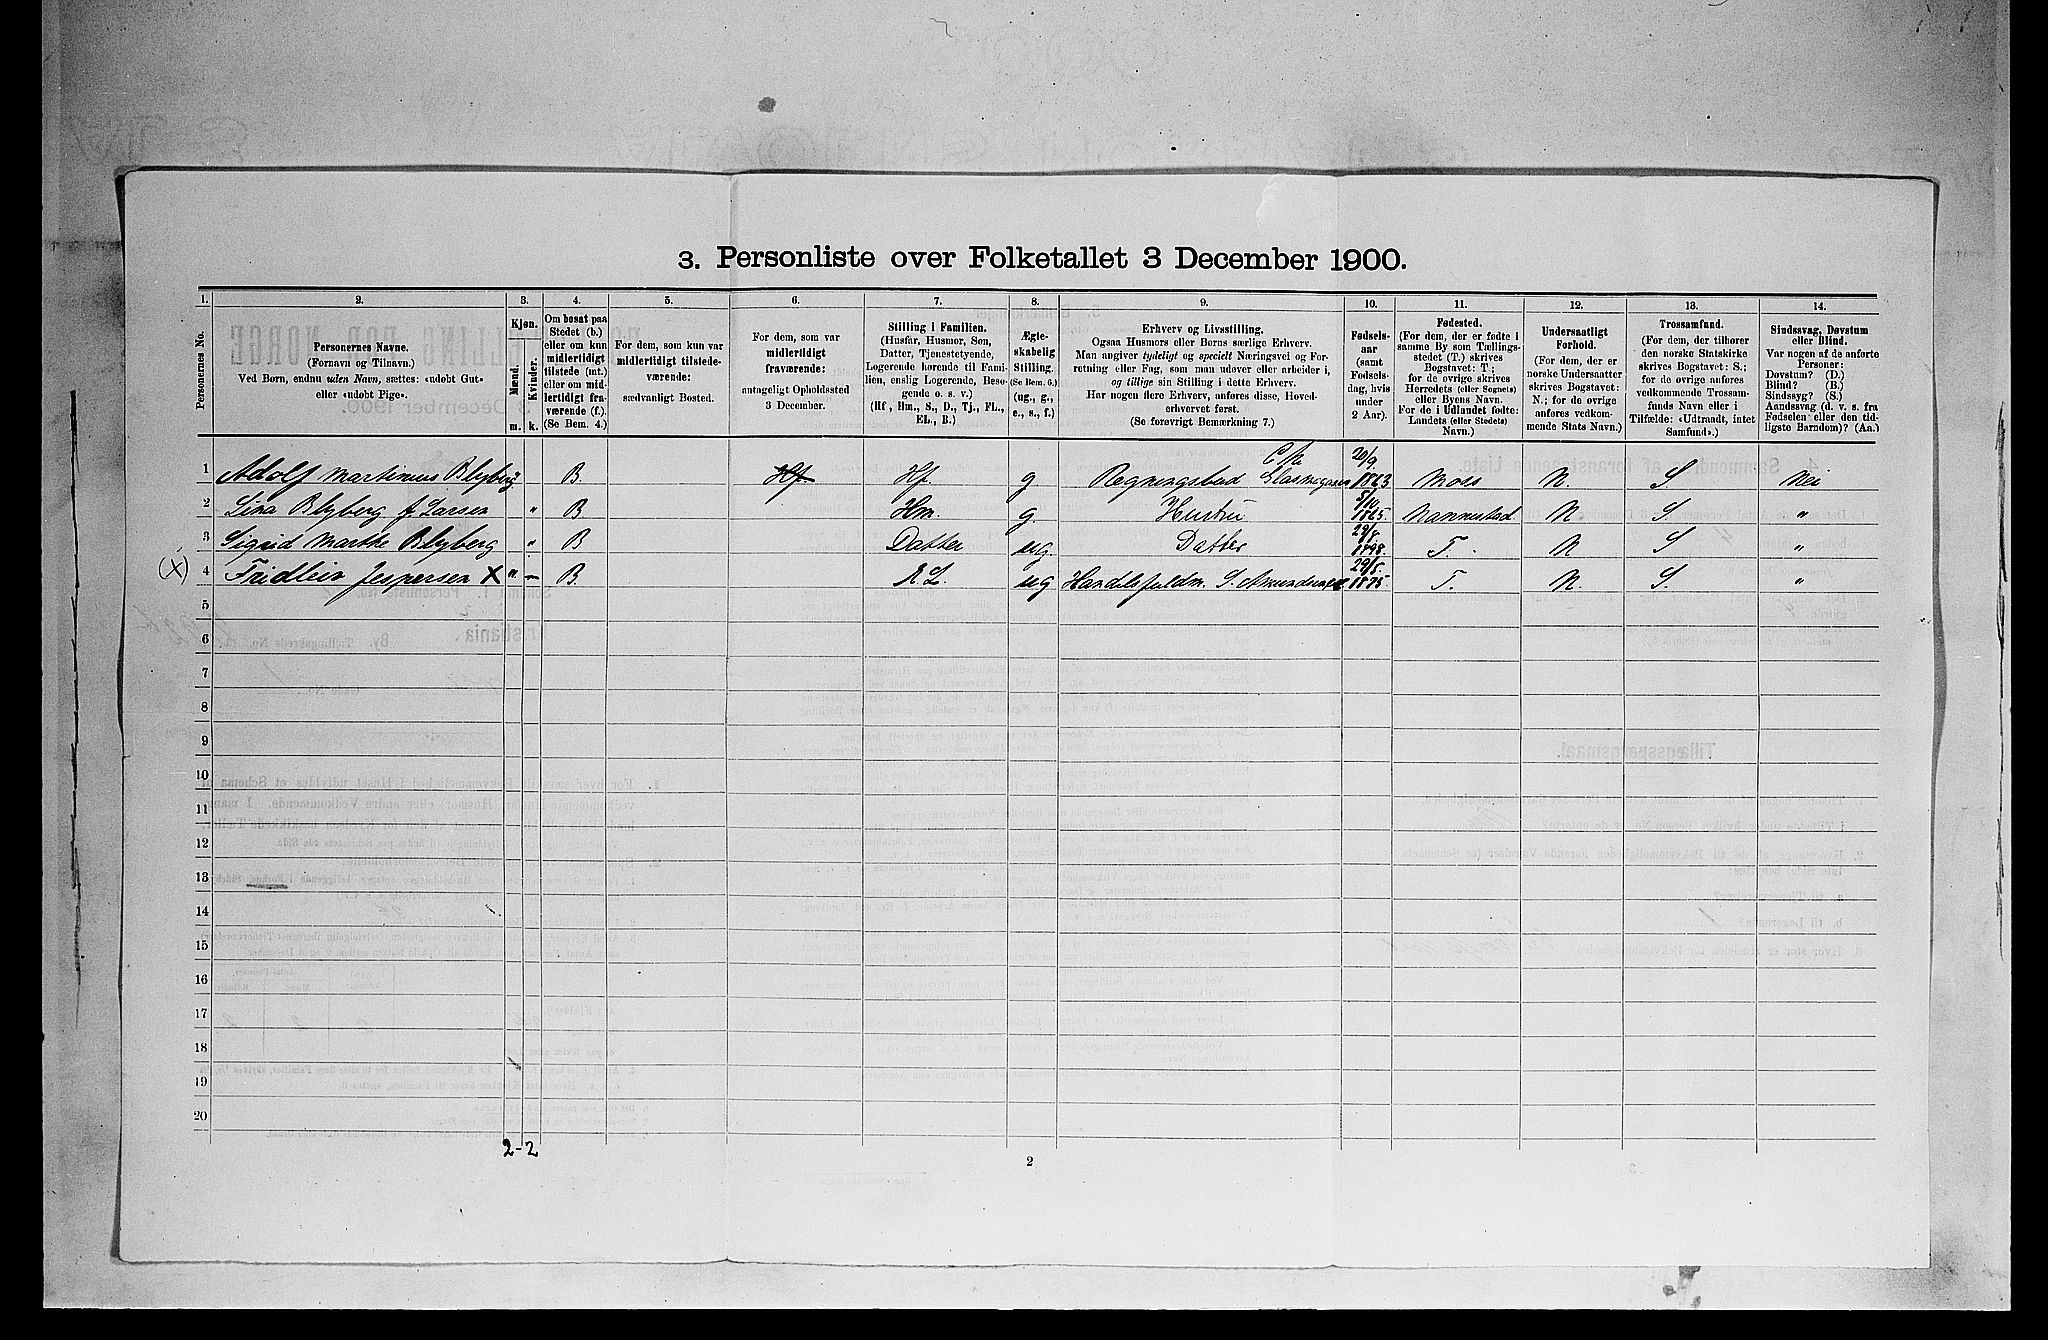 3. Personliste over Folketallet 3 December 1900.
1. 2. 3. 4. 5. 6. 7. 8. 9. 10. 11. 12. 13. 14.
Personernes No.
Personernes Navne.
(Fornavn og Tilnavn.)
Ved Børn, endnu uden Navn, sættes: «udøbt Gut»
eller «udøbt Pige».
Kjøn.
Mænd.
Kvinder.
m. k.
Om bosat paa
Stedet (b.)
eller om kun
midlertidigt
tilstede (mt.)
eller om mid-
lertidigt fra-
værende (f.).
(Se Bem. 4.)
For dem, som kun var
midlertidigt tilstede-
værende:
sædvanligt Bosted.
For dem, som var
midlertidigt
fraværende:
antageligt Opholdssted
3 December.
Stilling i Familien.
(Husfar, Husmor, Søn,
Datter, Tjenestetyende,
Logerende hørende til Fami-
lien, enslig Logerende, Besø-
gende o. s. v.)
(Hf., Hm., S., D., Tj., FL.,
EL., B.)
Ægte-
skabelig
Stilling.
(Se Bem. 6.)
(ug., g.,
e., s., f.)
Erhverv og Livsstilling.
Ogsaa Husmors eller Børns særlige Erhverv.
Man angiver tydeligt og specielt Næringsvei og For-
retning eller Fag, som man udøver eller arbeider i,
og tillige sin Stilling i dette Erhverv.
Har nogen flere Erhverv, anføres disse, Hoved-
erhvervet først.
(Se forøvrigt Bemærkning 7.)
Fødsels-
aar
(samt
Fødsels-
dag, hvis
under
2 Aar).
Fødested.
(For dem, der er fødte i
samme By som Tællings-
stedet (T.) skrives
Bogstavet: T;
for de øvrige skrives
Herredets (eller Sognets)
eller Byens Navn.
For de i Udlandet fødte:
Landets (eller Stedets)
Navn.)
Undersaatligt
Forhold.
(For dem, der er
norske Undersaatter
skrives Bogstavet:
N.; for de øvrige
anføres vedkom-
mende Stats Navn.)
Trossamfund.
(For dem, der tilhører
den norske Statskirke
skrives Bogstavet: S.;
for de øvrige anføres
vedkommende Trossam-
funds Navn eller i
Tilfælde: «Udtraadt, intet
Samfund».)
Sindssvag, Døvstum
eller Blind.
Var nogen af de anførte
Personer:
Døvstum? (D.)
Blind? (B.)
Sindssyg? (S.)
Aandssvag (d. v. s. fra
Fødselen eller den tid-
ligste Barndom)? (Aa.)
1 Adolf Martinius Blyberg B Hf Hf. g. Regningsbud 20/9 1863 Moss N. S. Nei
2 Lina Blyberg f. Larsen " B Hm. g. Hustru 1865 Nannestad N S. "
3 Sigrid Marthe Blyberg " B Datter ug. Datter 1898. T. N S "
(X) 4 Fridleiv Jespersen X " – B EL. ug Handelsfuldm. S. Amundsen 29/5. 1875 T. N S. "
5
6
7
8
9
10
11
12
13
14
15
16
17
18
19
20
2-2
2